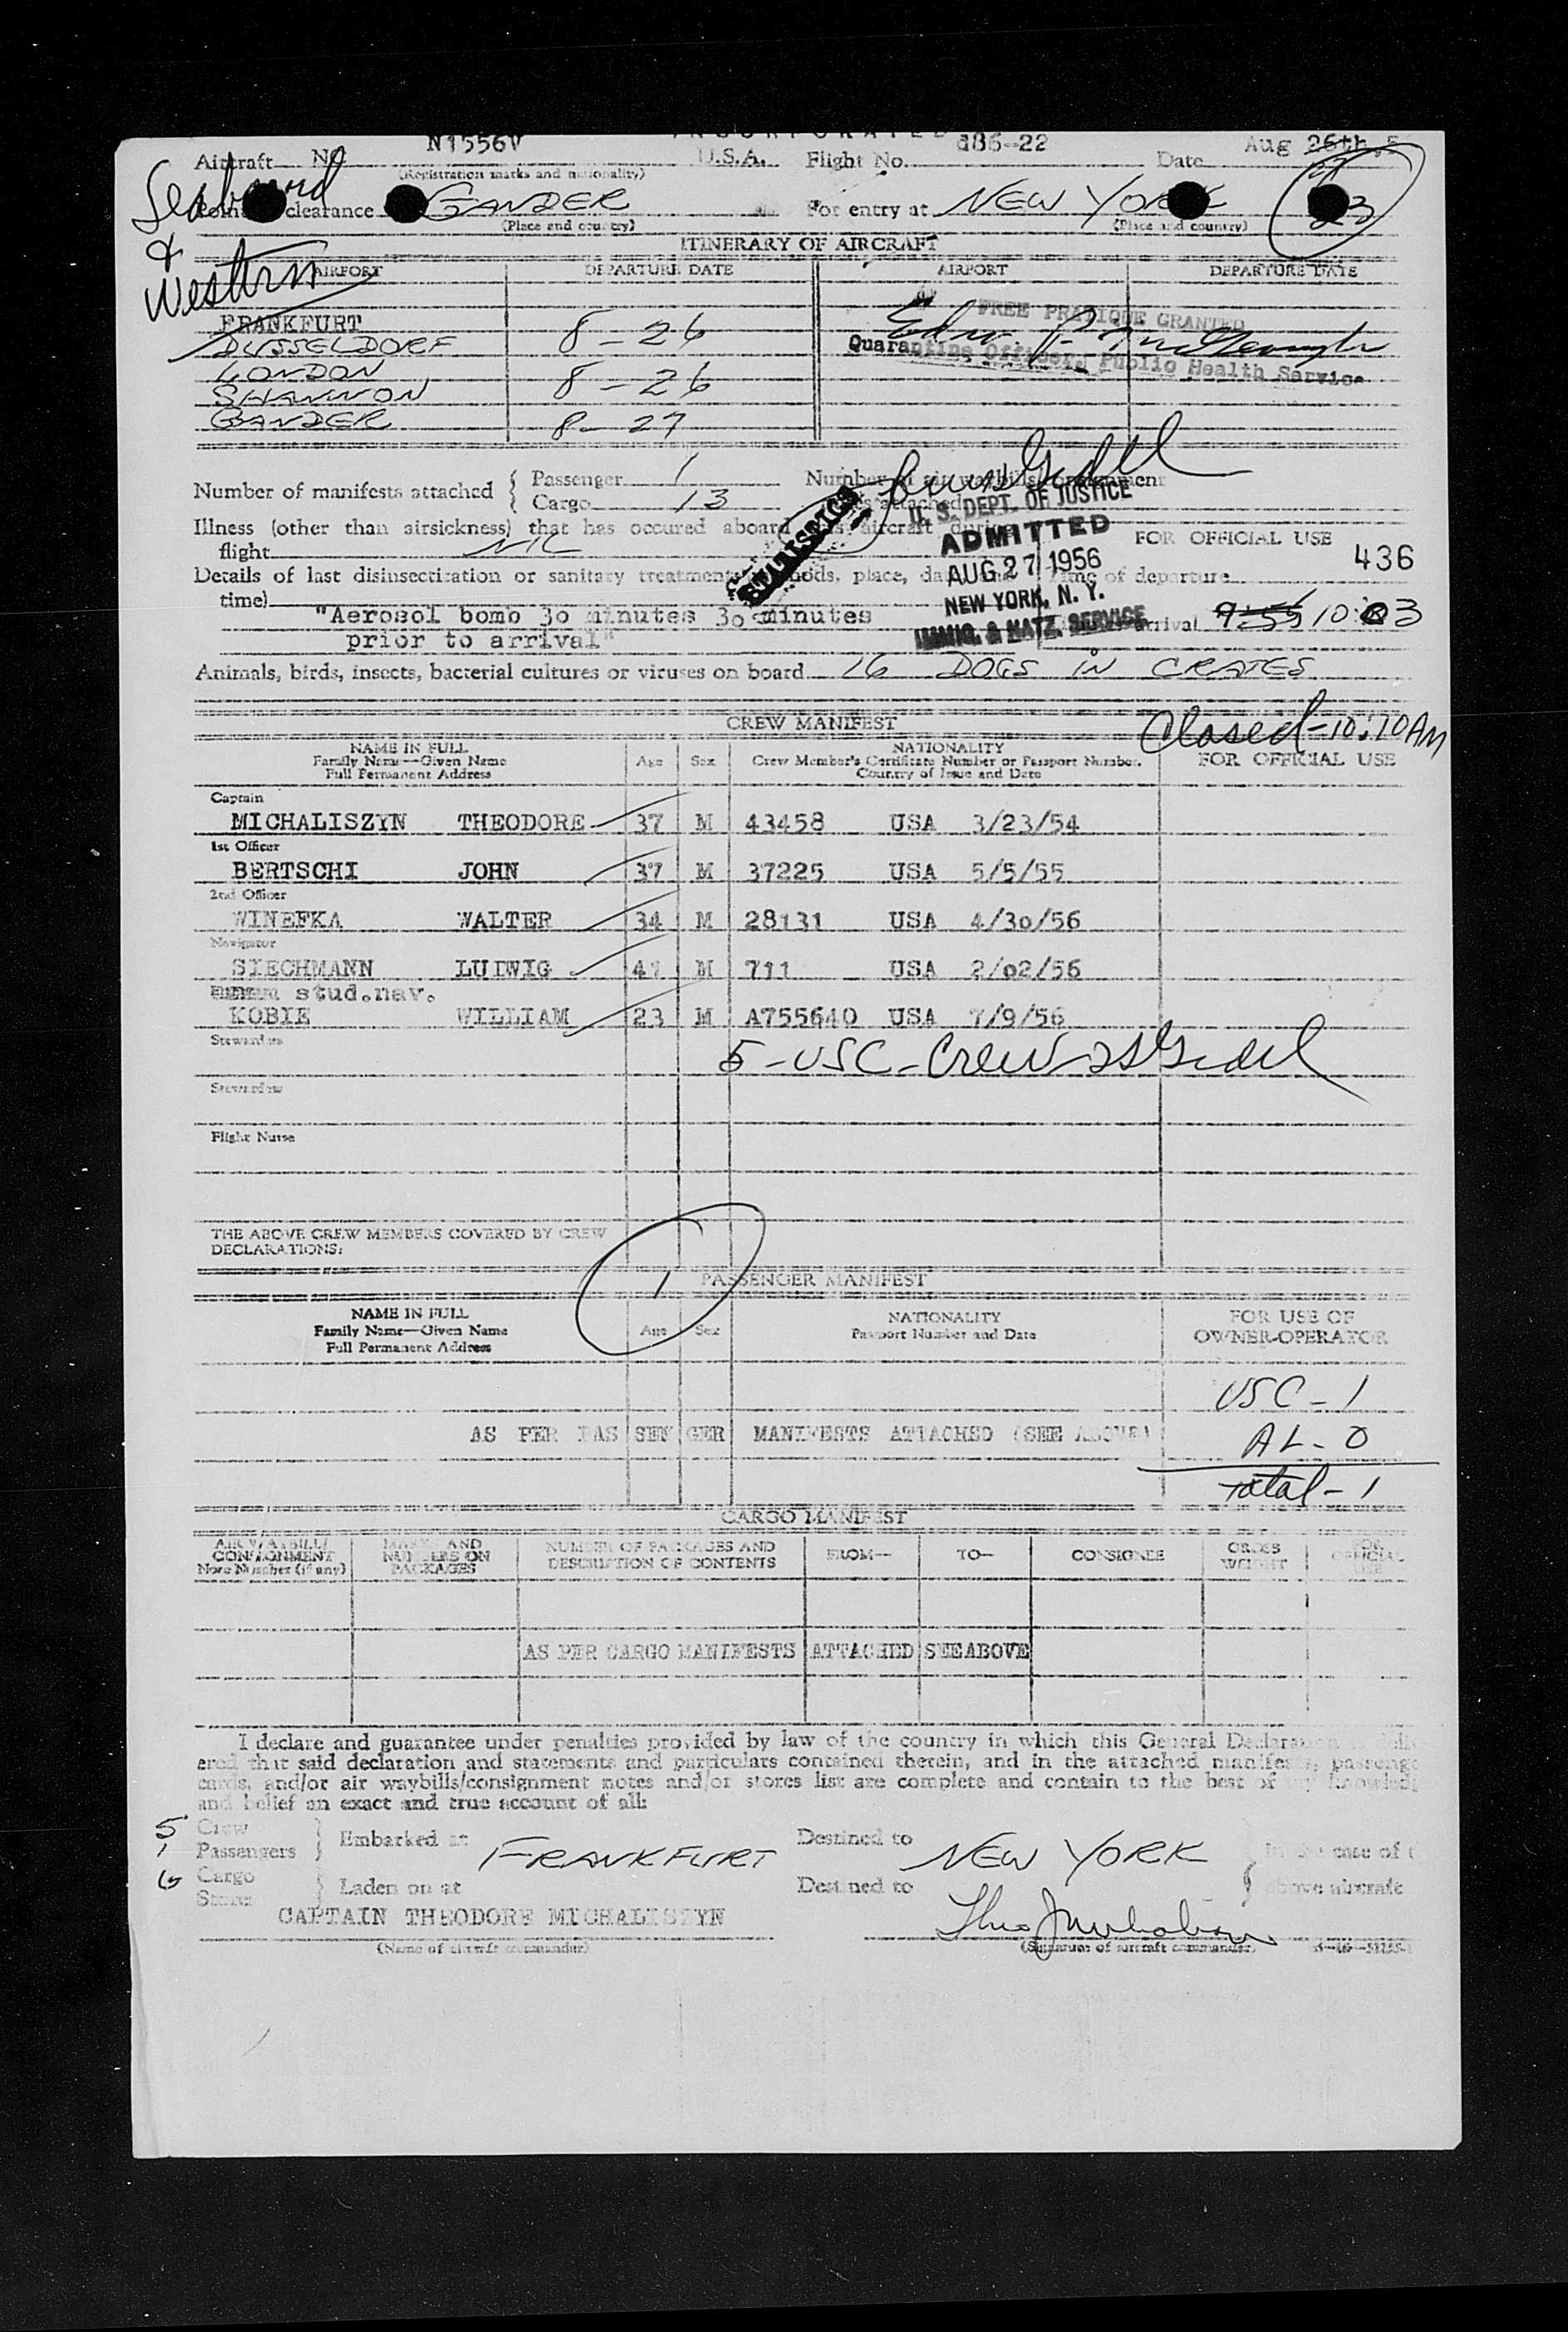 INCORPORATED
Aircraft No N1556V U.S.A. Flight No. 886-22 Date Aug 26th,5
(Registration marks and nationality)
Seaboard
&
Western
clearance GANDER For entry at NEW YORK 23
(Place and country) (Place and country)
ITINERARY OF AIRCRAFT
AIRPORT DEPARTURE DATE AIRPORT DEPARTURE DATE
FREE PRATIQUE GRANTED
FRANKFURT
DUSSELDORF 8-26
Quarantine Officer, Public Health Service
LONDON
SHANNON 8-26
GANDER 8-27
Number of manifests attached { Passenger 1
Cargo 13
Number of air waybills/consignment
attached
STATISTICS
U. S. DEPT. OF JUSTICE
ADMITTED
AUG 27 1956
NEW YORK, N. Y.
IMMIG. & NATZ. SERVICE
Illness (other than airsickness) that has occured aboard this aircraft during
flight NIL
FOR OFFICIAL USE
436
Details of last disinsectization or sanitary treatment methods, place, da Time of departure
time)
"Aerosol bomb 30 minutes 30 minutes arrival 9:55 10:03
prior to arrival"
Animals, birds, insects, bacterial cultures or viruses on board 16 DOGS IN CRATES
CREW MANIFEST
Closed-10:10AM
NAME IN FULL
Family Name—Given Name
Full Permanent Address
Age Sex
NATIONALITY
Crew Member's Certificate Number or Passport Number.
Country of Issue and Date
FOR OFFICIAL USE
Captain
MICHALISZYN THEODORE 37 M 43458 USA 3/23/54
1st Officer
BERTSCHI JOHN 37 M 37225 USA 5/5/55
2nd Officer
WINEFKA WALTER 34 M 28131 USA 4/30/56
Navigator
SIECHMANN LUDWIG 47 M 711 USA 2/02/56
stud.nav.
KOBIE WILLIAM 23 M A755640 USA 7/9/56
Stewardess
5-USC-Crew
Stewardess
Flight Nurse
THE ABOVE CREW MEMBERS COVERED BY CREW
DECLARATIONS:
1
PASSENGER MANIFEST
NAME IN FULL
Family Name—Given Name
Full Permanent Address
Age Sex
NATIONALITY
Passport Number and Date
FOR USE OF
OWNER-OPERATOR
USC-1
AS PER PASSENGER MANIFESTS ATTACHED (SEE ABOVE)
AL-0
Total-1
CARGO MANIFEST
AIR WAYBILL/
CONSIGNMENT
Note Number (if any)
MARKS AND
NUMBERS ON
PACKAGES
NUMBER OF PACKAGES AND
DESCRIPTION OF CONTENTS
FROM— TO— CONSIGNEE
GROSS
WEIGHT
FOR
OFFICIAL
USE
AS PER CARGO MANIFESTS ATTACHED SEE ABOVE
I declare and guarantee under penalties provided by law of the country in which this General Declaration
ered that said declaration and statements and particulars contained therein, and in the attached manifests, passenge
cards, and/or air waybills/consignment notes and/or stores list are complete and contain to the best of my knowledg
and belief an exact and true account of all:
5 Crew
1 Passengers } Embarked at FRANKFURT Destined to NEW YORK } in the case of t
6 Cargo
Stores } Laden on at Destined to above aircraft
CAPTAIN THEODORE MICHALISZYN
(Name of aircraft commander) (Signature of aircraft commander)